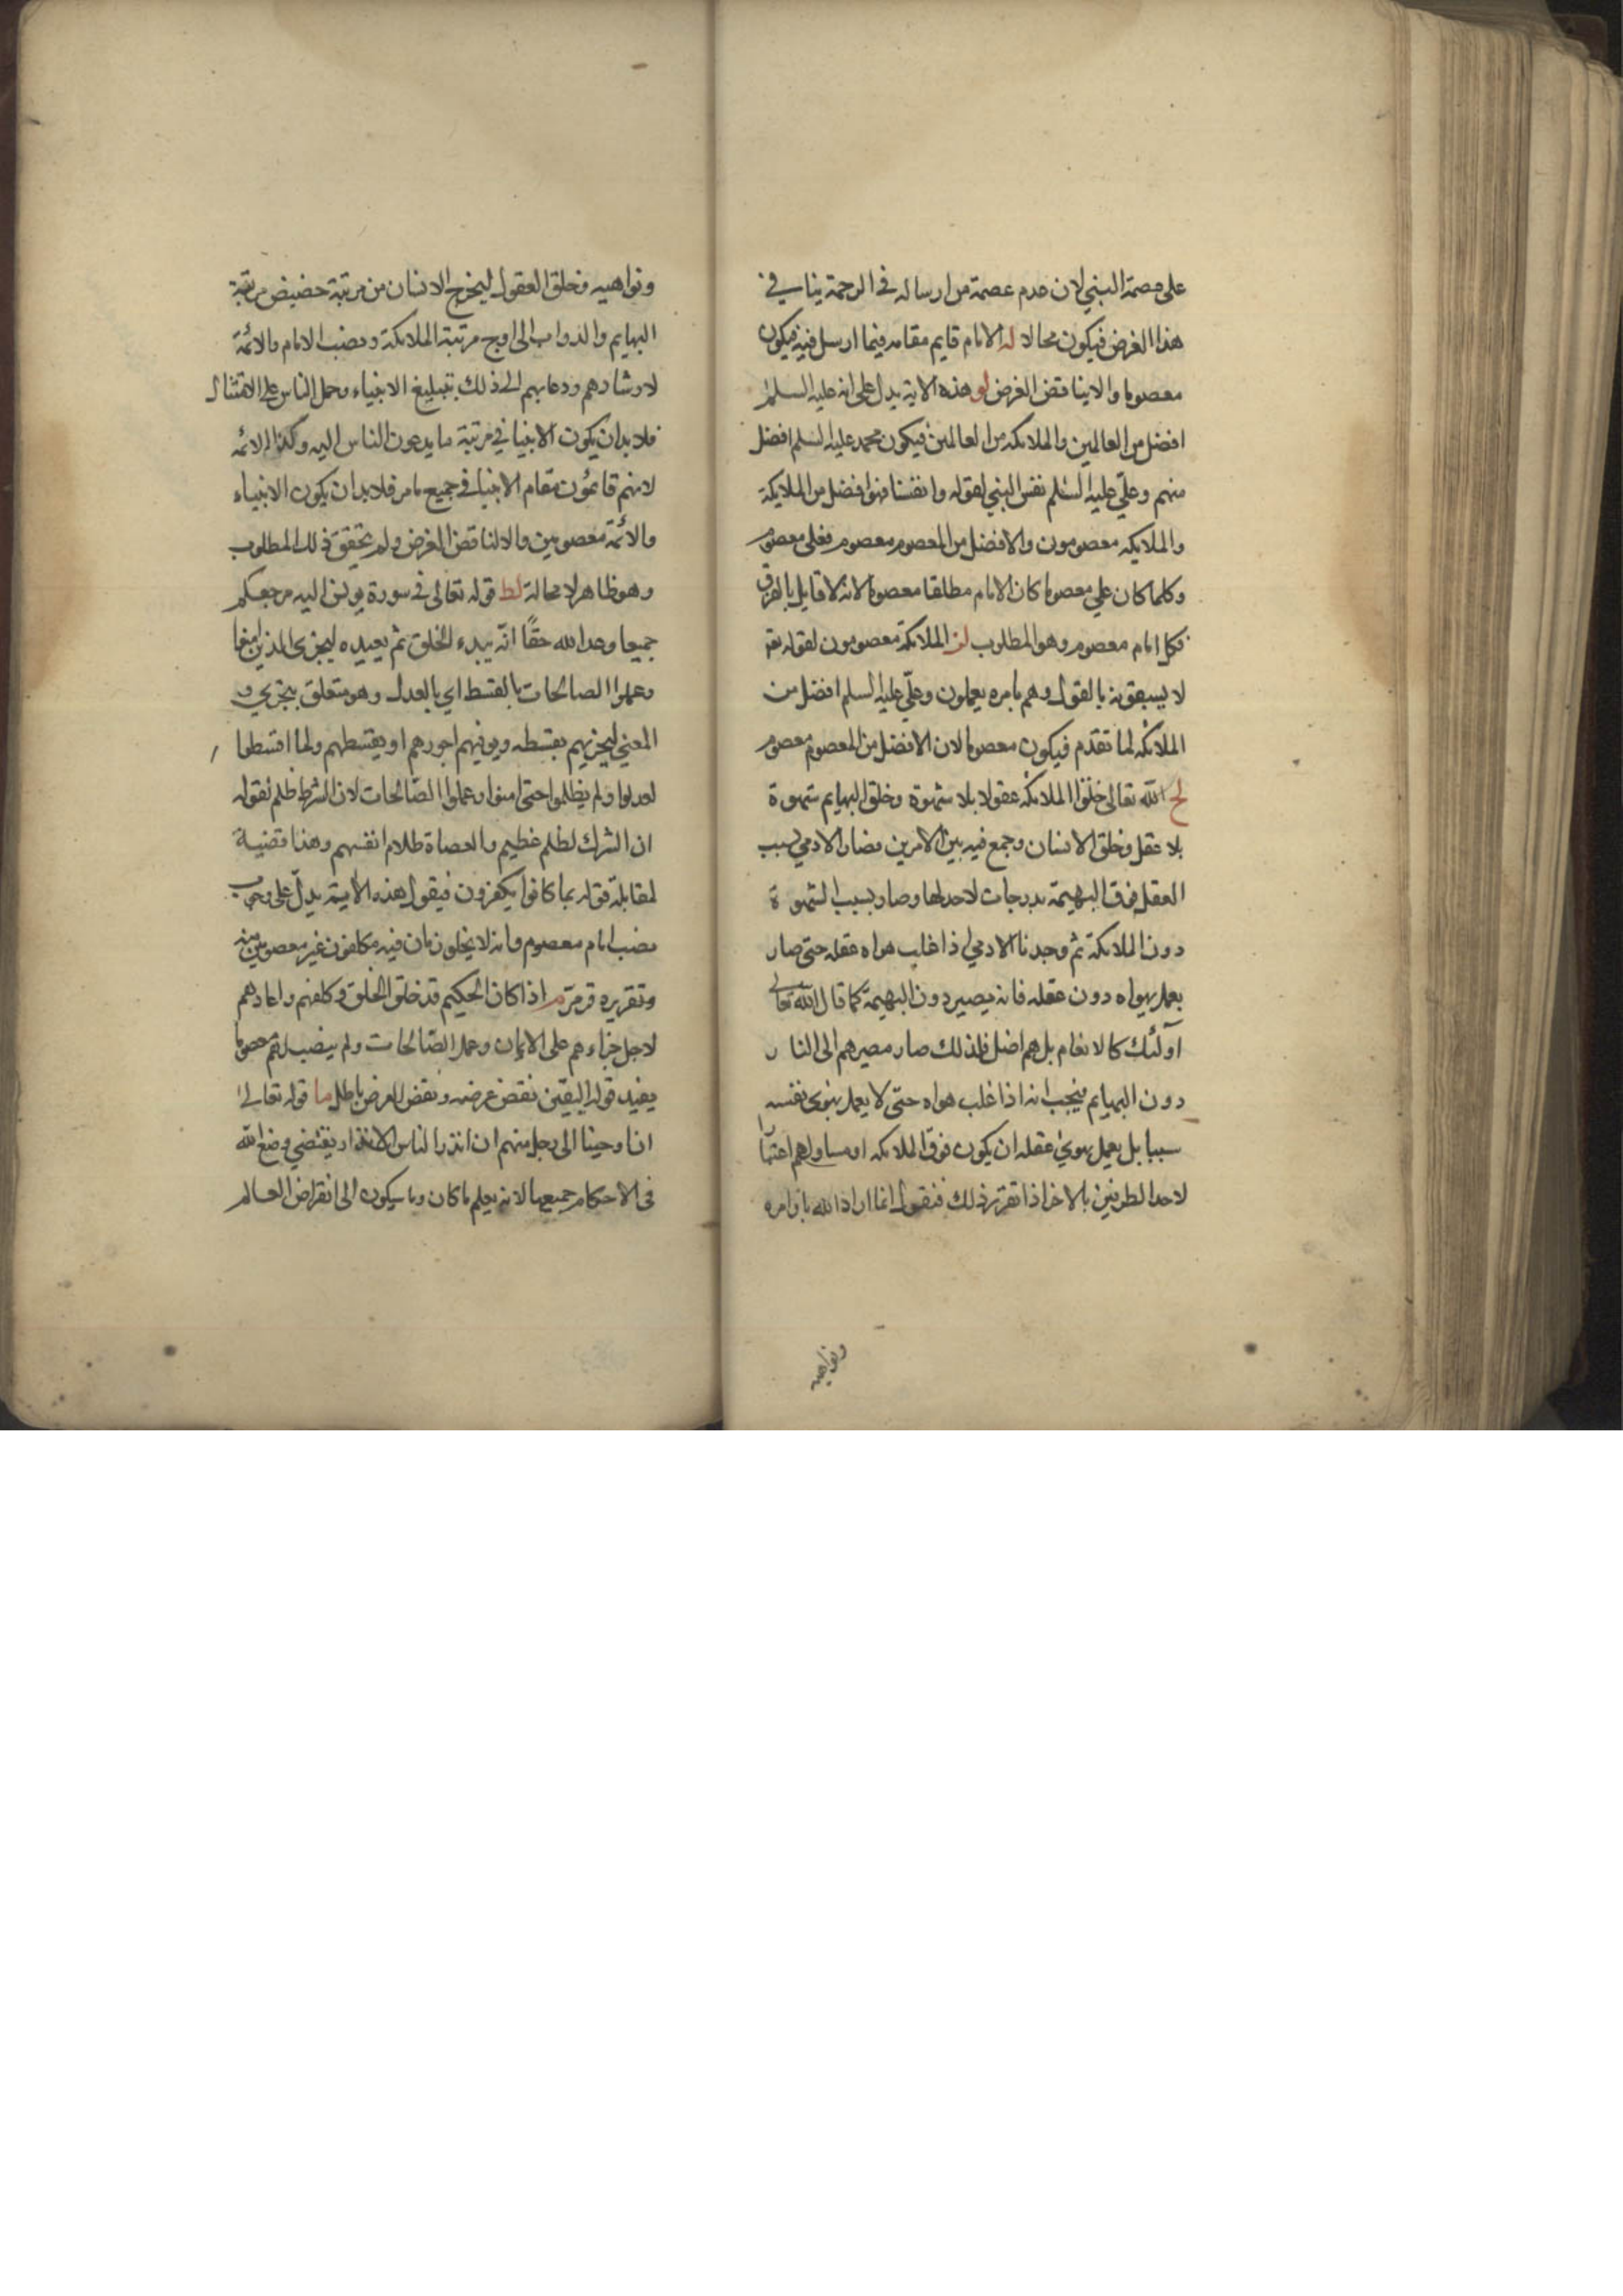 على عصمة النبي لان عدم عصمة من ارساله في الرحمة ينافي
هذا الغرض فيكون محالا له الامام قايم مقامه فيما ارسل فيه فيكون
معصوما والا يناقض الغرض لو هذه الاية يدل على انه عليه السلم
افضل من العالمين والملائكه من العالمين فيكون محمد عليه السلم افضل
منهم وعلي عليه السلم نفس النبي لقوله وانفسنا فهو افضل من الملايكة
والملايكه معصومون والافضل من المعصوم معصوم فعلى معصوم
وكلما كان علي معصوما كان الامام مطلقا معصوما لانه لا قايل بالفرق
فكل امام معصوم وهو المطلوب لز الملائكة معصومون لقوله تع
لا يسبقونه بالقول وهم بامره يعملون وعليّ عليه السلم افضل من
الملائكه لما تقدم فيكون معصوما لان الافضل من المعصوم معصوم
لح الله تعالى خلق الملائكه عقولا بلا شهوة وخلق البهايم شهوة
بلا عقل وخلق الانسان وجمع فيه بين الامرين فصار الادمي بسبب
العقل فوق البهيمة بدرجات لاحد لها وصار بسبب الشهوة
دون الملائكة ثم وجدنا الادمي اذا غلب هواه عقله حتى صار
يعمل بهواه دون عقله فانه يصير دون البهيمة كما قال الله تعالى
اولئك كالانعام بل هم اضل فلذلك صار مصيرهم الى النار
دون البهايم فيجب انه اذا غلب هواه حتى لا يعمل بهوى نفسه
سببا بل يعمل بهوى عقله ان يكون فوق الملائكه او مساو لهم اعتبارا
لاحد الطرفين بالاخر اذا تقرر ذلك فنقول انما اراد الله باوامره
ونواهيه
ونواهيه وخلق العقول ليخرج الانسان من مرتبة حضيض مرتبة
البهايم والدواب الى اوج مرتبة الملائكة ونصب الامام والائمة
لارشادهم ودعايهم الى ذلك بتبليغ الانبياء وحمل الناس على الامتثال
فلا بد ان يكون الانبيا في مرتبة ما يدعون الناس اليه وكذا الائمه
لانهم قائمون مقام الانبيا في جميع ما مر فلا بد ان يكون الانبياء
والائمة معصومين والا لناقض الغرض ولم يتحقق ذلك المطلوب
وهو ظاهر لا محالة لط قوله تعالى في سورة يونس اليه مرجعكم
جميعا وعد الله حقًا انّه يبدء الخلق ثم يعيده ليجزى الذين امنوا
وعملوا الصالحات بالقسط اي بالعدل وهو متعلق بيجزي و
المعني ليجزيهم بقسطه ويوفيهم اجورهم او بقسطهم ولما اقسطوا
لعدلوا ولم يظلموا حتى امنوا وعملوا الصّالحات لان الشرك ظلم لقوله
ان الشرك لظلم عظيم والعصاة ظلام انفسهم وهذا قضية
لمقابلة قوله بما كانوا يكفرون فيقول هذه الاية يدلّ على وجوب
نصب امام معصوم وانه لا يخلو زمان فيه مكلفون غير معصومين منه
وتقريره قد مرّ م اذا كان الحكيم قد خلق الخلق وكلفهم واعادهم
لاجل جزاءهم على الايمان وعمل الصّالحات ولم ينصب لهم معصوما
يفيد قوله اليقين نقض غرضه ونقض الغرض باطل ما قوله تعالى
ان اوحينا الى رجل منهم ان انذر الناس الانذار يقتضي وضع الله
في الاحكام جميعها لانه يعلم ما كان وما سيكون الى انقراض العالم